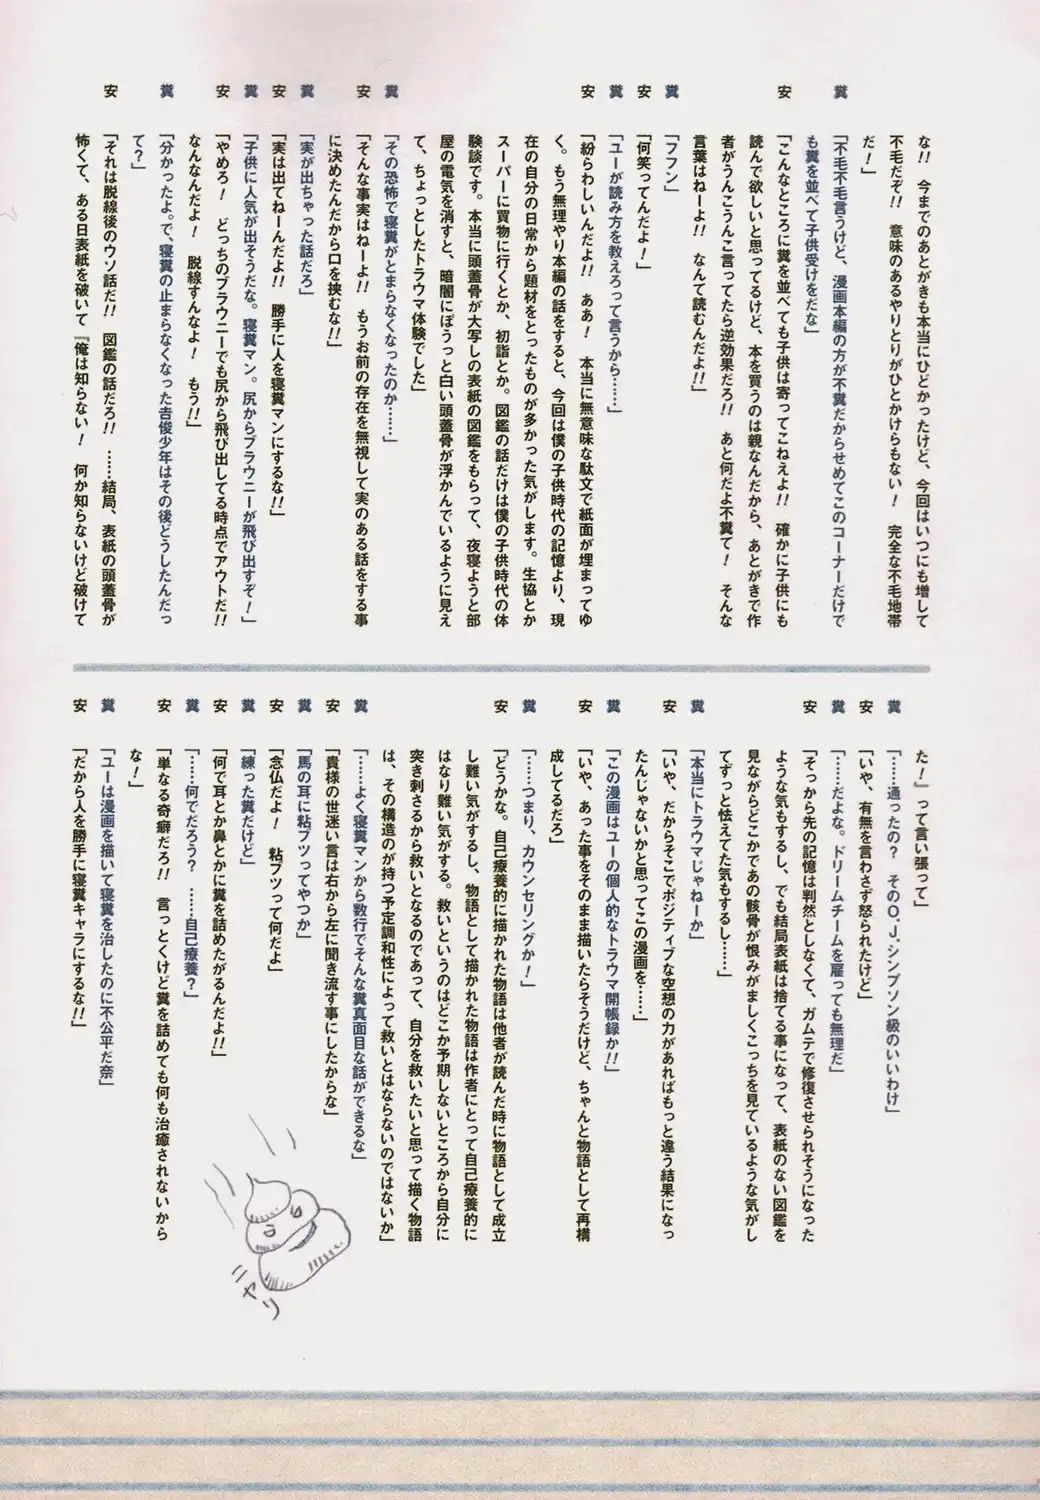 な!! 今までのあとがきも本当にひどかったけど、今回はいつにも増して
不毛だぞ!! 意味のあるやりとりがひとかけらもない! 完全な不毛地帯
だ!」
糞 「不毛不毛言うけど、漫画本編の方が不糞だからせめてこのコーナーだけで
も糞を並べて子供受けをだな」
安 「こんなところに糞を並べても子供は寄ってこねえよ!! 確かに子供にも
読んで欲しいと思ってるけど、本を買うのは親なんだから、あとがきで作
者がうんこうんこ言ってたら逆効果だろ!! あと何だよ不糞て! そんな
言葉はねーよ!! なんて読むんだよ!!」
糞 「フフン」
安 「何笑ってんだよ!」
糞 「ユーが読み方を教えろって言うから……」
安 「紛らわしいんだよ!! ああ! 本当に無意味な駄文で紙面が埋まってゆ
く。もう無理やり本編の話をすると、今回は僕の子供時代の記憶より、現
在の自分の日常から題材をとったものが多かった気がします。生協とか
スーパーに買物に行くとか、初詣とか。図鑑の話だけは僕の子供時代の体
験談です。本当に頭蓋骨が大写しの表紙の図鑑をもらって、夜寝ようと部
屋の電気を消すと、暗闇にぼうっと白い頭蓋骨が浮かんでいるように見え
て、ちょっとしたトラウマ体験でした」
糞 「その恐怖で寝糞がとまらなくなったのか……」
安 「そんな事実はねーよ!! もうお前の存在を無視して実のある話をする事
に決めたんだから口を挟むな!!」
糞 「実が出ちゃった話だろ」
安 「実は出てねーんだよ!! 勝手に人を寝糞マンにするな!!」
糞 「子供に人気が出そうだな。寝糞マン。尻からブラウニーが飛び出すぞ!」
安 「やめろ! どっちのブラウニーでも尻から飛び出してる時点でアウトだ!!
なんなんだよ! 脱線すんなよ! もう!!」
糞 「分かったよ。で、寝糞の止まらなくなった𠮷俊少年はその後どうしたんだっ
て?」
安 「それは脱線後のウソ話だ!! 図鑑の話だろ!! ……結局、表紙の頭蓋骨が
怖くて、ある日表紙を破いて『俺は知らない! 何か知らないけど破けて
た!』って言い張って」
糞 「……通ったの? そのO.J.シンプソン級のいいわけ」
安 「いや、有無を言わさず怒られたけど」
糞 「……だよな。ドリームチームを雇っても無理だ」
安 「そっから先の記憶は判然としなくて、ガムテで修復させられそうになった
ような気もするし、でも結局表紙は捨てる事になって、表紙のない図鑑を
見ながらどこかであの骸骨が恨みがましくこっちを見ているような気がし
てずっと怯えてた気もするし……」
糞 「本当にトラウマじゃねーか」
安 「いや、だからそこでポジティブな空想の力があればもっと違う結果になっ
たんじゃないかと思ってこの漫画を……」
糞 「この漫画はユーの個人的なトラウマ開帳録か!!」
安 「いや、あった事をそのまま描いたらそうだけど、ちゃんと物語として再構
成してるだろ」
糞 「……つまり、カウンセリングか!」
安 「どうかな。自己療養的に描かれた物語は他者が読んだ時に物語として成立
し難い気がするし、物語として描かれた物語は作者にとって自己療養的に
はなり難い気がする。救いというのはどこか予期しないところから自分に
突き刺さるから救いとなるのであって、自分を救いたいと思って描く物語
は、その構造のが持つ予定調和性によって救いとはならないのではないか」
糞 「……よく寝糞マンから数行でそんな糞真面目な話ができるな」
安 「貴様の世迷い言は右から左に聞き流す事にしたからな」
糞 「馬の耳に粘ブツってやつか」
安 「念仏だよ! 粘ブツって何だよ」
糞 「練った糞だけど」
安 「何で耳とか鼻とかに糞を詰めたがるんだよ!!」
糞 「……何でだろう? ……自己療養?」
安 「単なる奇癖だろ!! 言っとくけど糞を詰めても何も治癒されないから
な!」
糞 「ユーは漫画を描いて寝糞を治したのに不公平だ奈」
安 「だから人を勝手に寝糞キャラにするな!!」
ニヤリ